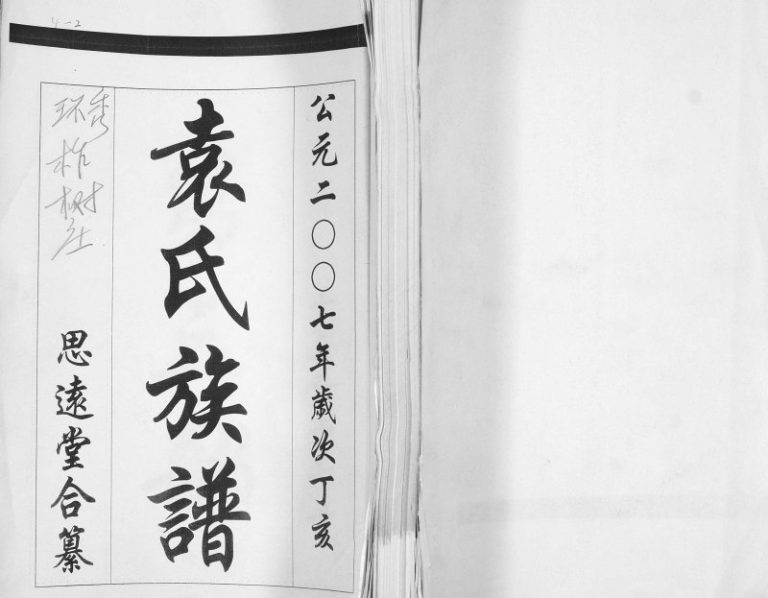 公元二〇〇七年歲次丁亥
袁氏族譜
思遠堂合纂
4-2